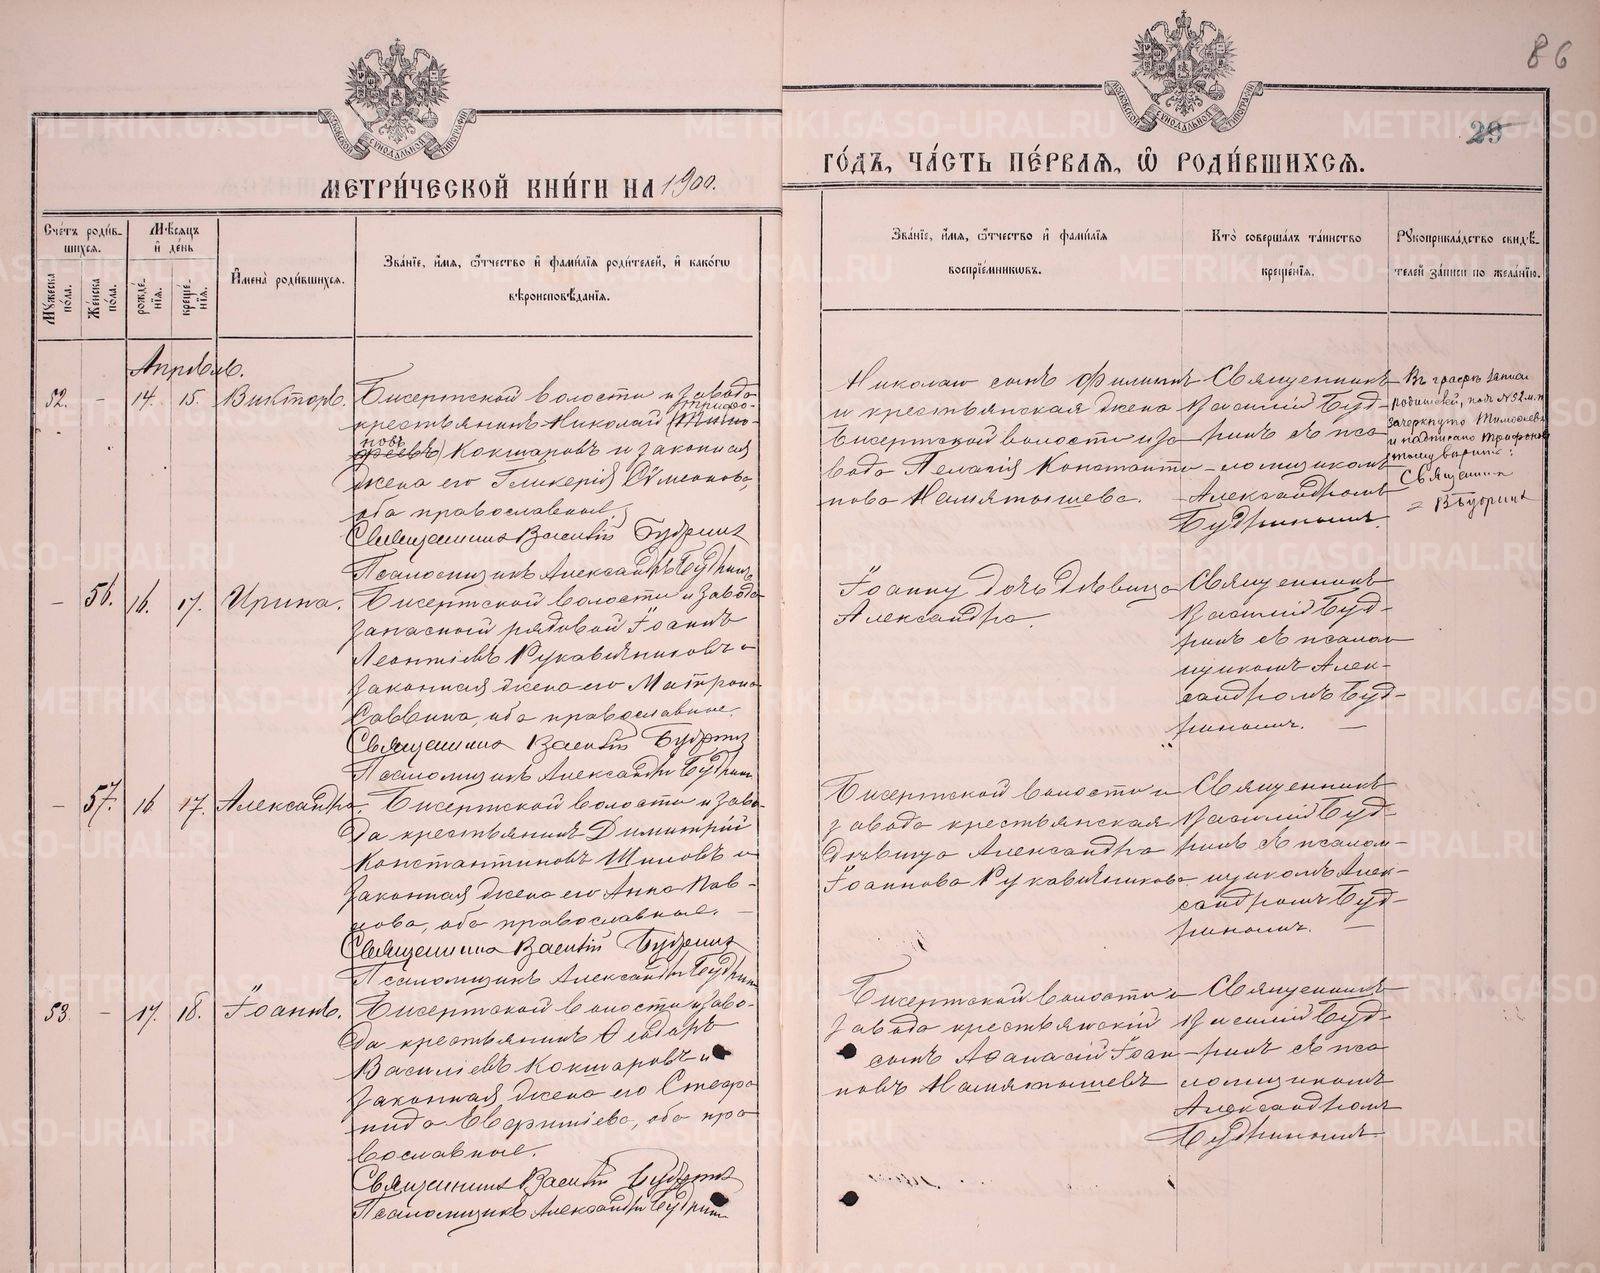 86
29
МЕТРИ́ЧЕСКОЙ КНИ́ГИ НА 1900.
ГО́ДЪ, ЧА́СТЬ ПЕ́РВАЯ, Ѡ҆ РОДИ́ВШИХСЯ.
Сче́тъ роди́в-
шихся.
Мѣ́сяцъ
и҆ де́нь
Мꙋ́жеска по́ла.
Же́нска по́ла.
рожде́-
нїя.
креще́-
нїя.
И҆мена̀ роди́вшихся.
Зва́нїе, и҆́мя, ѻ҆́тчество и҆ фами́лїя роди́телей, и҆ како́гѡ
вѣроисповѣ́данїя.
Зва́нїе, и҆́мя, ѻ҆́тчество и҆ фами́лїя
воспрїе́мниковъ.
Кто̀ соверша́лъ та́инство
креще́нїя.
Рꙋкоприкла́дство свидѣ́-
телей за́писи по жела́нїю.
Апрѣль.
52. – 14. 15. Викторъ.
Бисертской волости и завода
крестьянинъ Николай
Трифо-
новъ
Кокшаровъ и законная
жена его Гликерія Сѵмеонова,
оба православные.
Священникъ Василій Будринъ
Псаломщикъ Александръ Будринъ
Николая сынъ Филиппъ
и крестьянская жена
Бисертской волости и за
вода Пелагія Константи-
нова Намятышева.
Священникъ
Василій Буд-
ринъ съ пса
ломщикомъ
Александромъ
Будринымъ.
Въ графѣ записи
родителей, подъ №52 м.п.
зачеркнуто Тимофеевъ
и надписано Трифоновъ
тому вѣрить:
Священникъ
В. Будринъ
– 56. 16. 17. Ирина.
Бисертской волости и завода
запасный рядовой Іоаннъ
Леонтіевъ Рукавишниковъ и
законная жена его Матрона
Саввина, оба православные.
Священникъ Василій Будринъ
Псаломщикъ Александръ Будринъ
Іоанну дочь дѣвица
Александра.
Священникъ
Василій Буд-
ринъ съ псалом
щикомъ Алек-
сандромъ Буд-
ринымъ. –
– 57. 16. 17. Александра.
Бисертской волости и заво-
да крестьянинъ Димитрій
Константиновъ Шиловъ и
законная жена его Анна Пав-
лова, оба православные. –
Священникъ Василій Будринъ
Псаломщикъ Александръ Будринъ
Бисертской волости и
завода крестьянская
дѣвица Александра
Іоаннова Рукавишникова
Священникъ
Василій Буд-
ринъ съ псалом-
щикомъ Алек-
сандромъ Буд-
ринымъ. –
53. – 17. 18. Іоаннъ.
Бисертской волости и заво-
да крестьянинъ Ѳеодоръ
Василіевъ Кокшаровъ и
законная жена его Стефа
нида Евфиміева, оба пра
вославные.
Священникъ Василій Будринъ
Псаломщикъ Александръ Будринъ
Бисертской волости и
завода крестьянскій
сынъ Аѳанасій Іоан-
новъ Намятышевъ
Священникъ
Василій Буд-
ринъ съ пса
ломщикомъ
Александромъ
Будринымъ.
METRIKI.GASO-URAL.RU